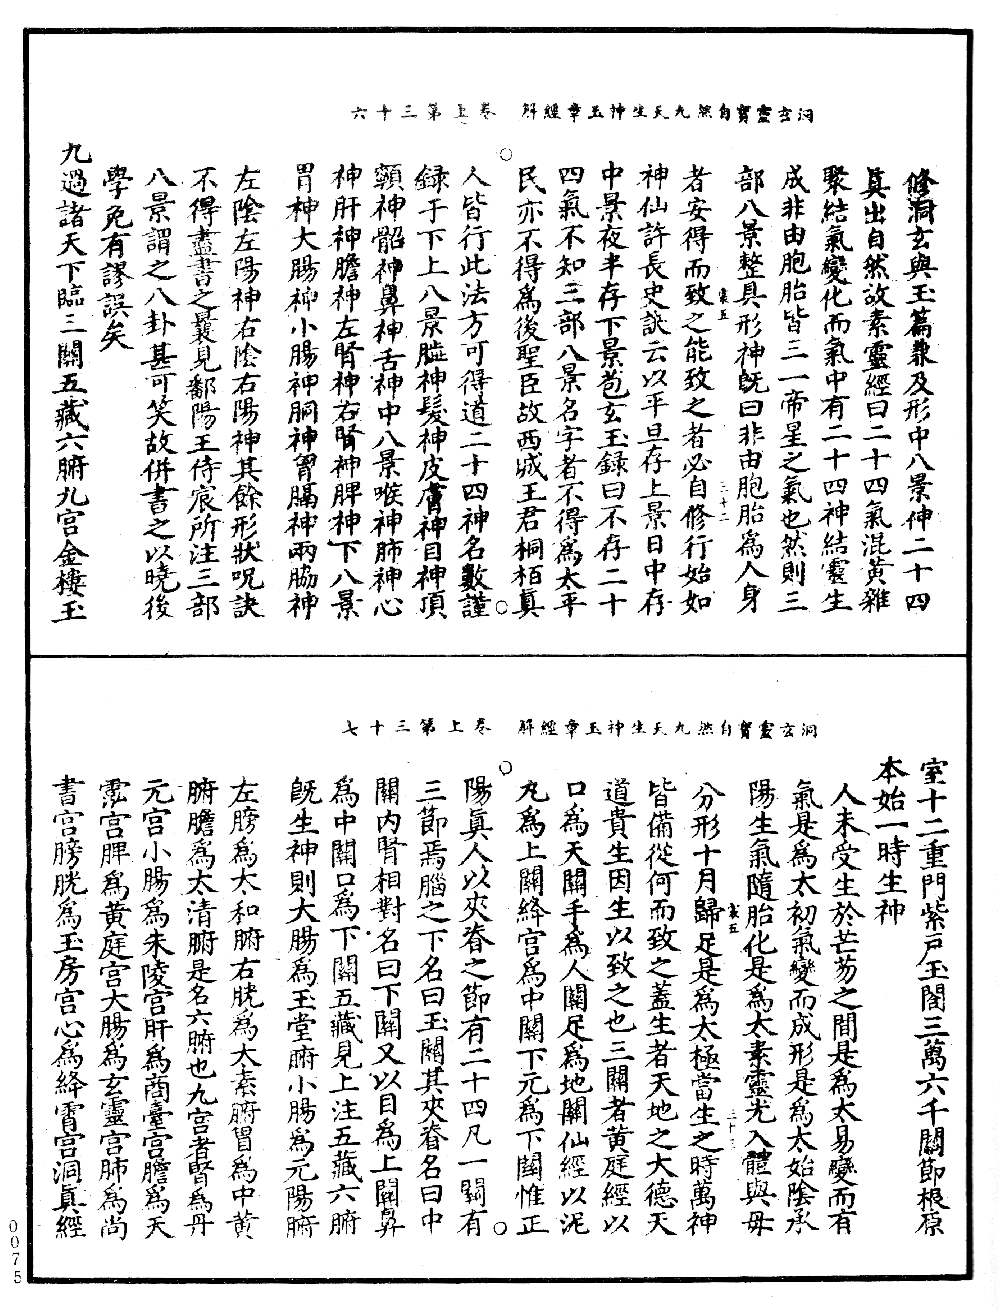 洞玄靈寶自然九天生神玉章經解　卷上第三十六
修洞玄與玉篇兼及形中八景神二十四
眞出自然故素靈經曰二十四氣混黃雜
聚結氣變化而氣中有二十四神結靈生
成非由胞胎皆三一帝星之氣也然則三
部八景整具形神旣曰非由胞胎爲人身
者安得而致之能致之者必自修行始如
神仙許長史訣云以平旦存上景日中存
中景夜半存下景苞玄玉錄曰不存二十
四氣不知三部八景名字者不得爲太平
民亦不得爲後聖臣故西城王君桐栢眞
人皆行此法方可得道二十四神名數謹
録于下上八景腦神髮神皮膚神目神項
顖神髂神鼻神舌神中八景喉神肺神心
神肝神膽神左腎神右腎神脾神下八景
胃神大腸神小腸神胴神胷膈神兩脇神
左陰左陽神右陰右陽神其餘形狀呪訣
不得盡書之曩見鄱陽王侍宸所注三部
八景謂之八卦甚可笑故併書之以曉後
學免有謬誤矣
九過諸天下臨三關五藏六腑九宮金樓玉
洞玄靈寶自然九天生神玉章經解　卷上第三十七
室十二重門紫戶玉閣三萬六千關節根原
本始一時生神
人未受生於芒芴之間是爲太易變而有
氣是爲太初氣變而成形是爲太始陰承
陽生氣隨胎化是爲太素靈光入體與母
分形十月歸足是爲太極當生之時萬神
皆備從何而致之蓋生者天地之大德天
道貴生因生以致之也三關者黃庭經以
口爲天關手爲人關足爲地關仙經以泥
丸爲上關絳宮爲中關下元爲下關惟正
陽眞人以夾脊之節有二十四凡一關有
三節焉腦之下名曰玉關其夾脊名曰中
關內腎相對名曰下關又以目爲上關鼻
爲中關口爲下關五藏見上注五藏六腑
旣生神則大腸爲玉堂腑小腸爲元陽腑
左膀爲太和腑右胱爲太素腑胃爲中黃
腑膽爲太清腑是名六腑也九宮者腎爲丹
元宮小腸爲朱陵宮肝爲商臺宮膽爲天
靈宮脾爲黃庭宮大腸爲玄靈宮肺爲尚
書宮膀胱爲玉房宮心爲絳霄宮洞眞經
0075